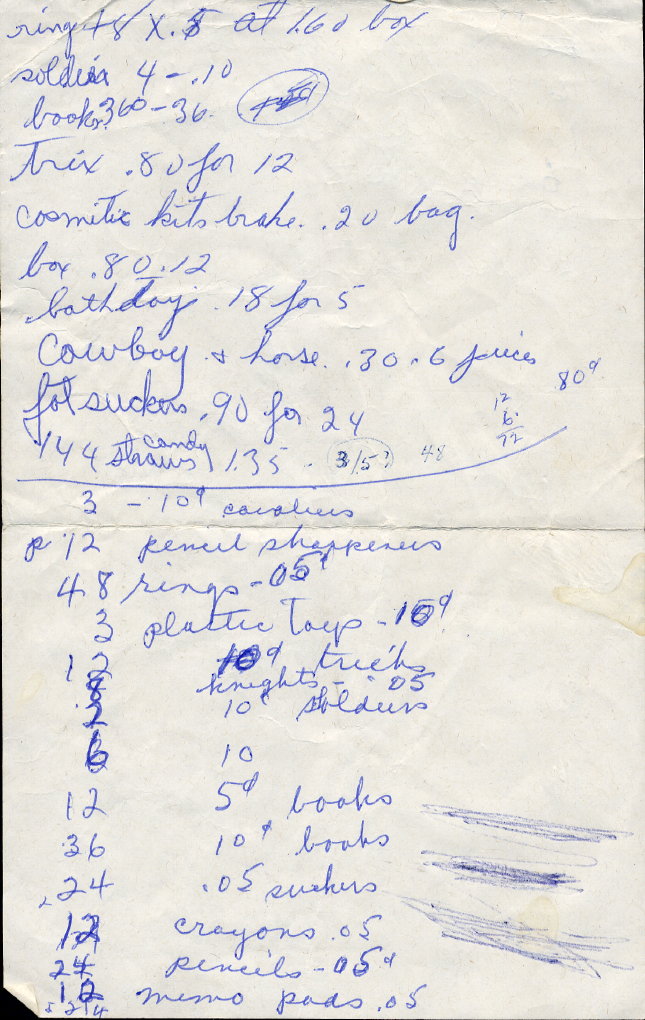 rings 48 X .5 at 1.60 box
soldier 4 - .10
books 360 - 36.
trix .80 for 12
cosmetic kits brake. .20 bag.
box .80 . 12
bathday .18 for 5
cowboy & horse. .30 . 6 juices
80¢
suckers .90 for 24
12
6.
72
144 candy straws 1.35 - 3/5? 48
3 - 10¢ cavaliers
p 12 pencil sharpeners
48 rings - 05¢
3 plastic Toys - 10¢
12 10¢ tricks
8 knights - .05
2 10¢ soldiers
6 10
12 5¢ books
36 10¢ books
24 .05 suckers
12 crayons .05
24 pencils - 05¢
12 memo pads .05